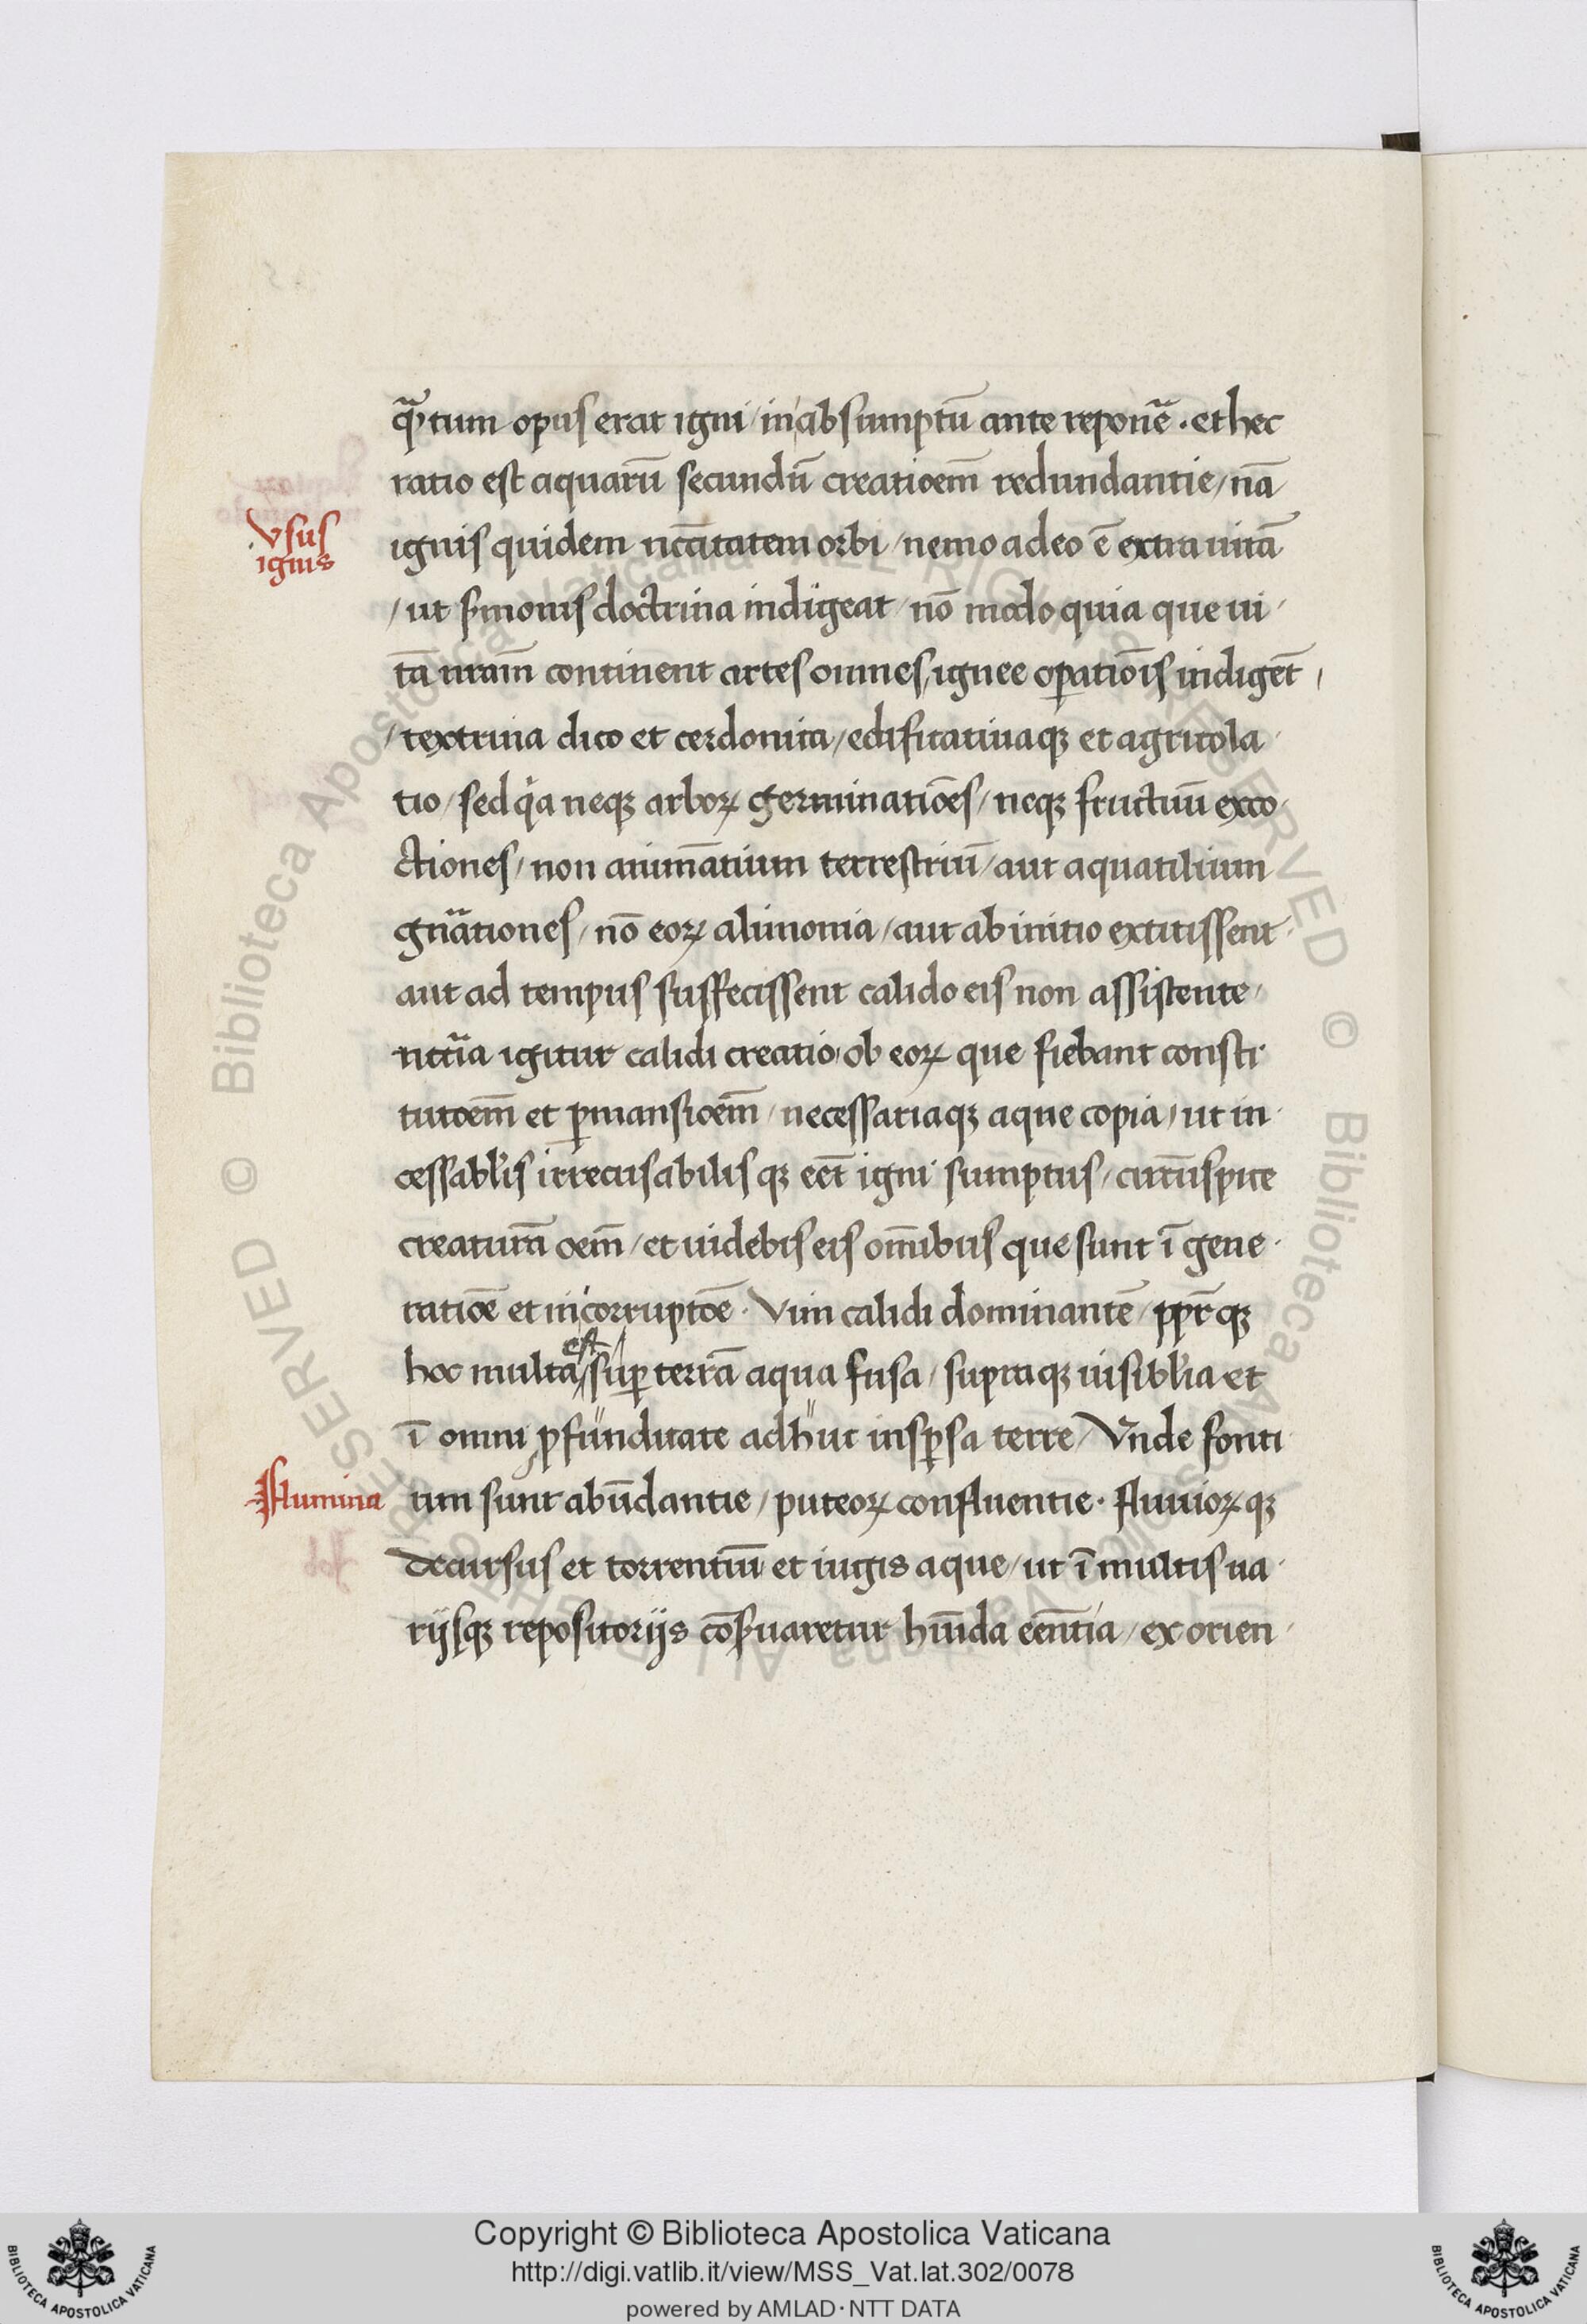 q̃ntum opus erat igni / in absumptū ante reponẽ . et hec
ratio est aquarū secundū creatioem̄ redundantie / nā
Vsus
ignis
ignis quidem nccītatem orbi / nemo adeo ē extra uitā
/ ut s̄monis doctrina indigeat / nō modo quia que ui /
tā nram̄ continent artes omnes / ignee oꝑatiōis indigēt /
/ textrina dico et cerdonica / edificatiuaqꝫ et agricola /
tio / sed qͥa neqꝫ arboꝝ germinatiōes / neqꝫ fructuū exco /
ctiones / non animātium terrestriū / aut aquatilium
gnãtiones / nō eoꝝ alimonia / aut ab initio extitissent /
aut ad tempus suffecissent calido eis non assistente /
nccĩa igitur calidi creatio / ob eoꝝ que fiebant consti /
tutoem̄ et ꝑmansioem̄ / necessariaqꝫ aque copia / ut in /
cessabl̓is irrecusabilis qꝫ eēt igni sumptus / circūspice
creaturā oem̄ / et uidebis eis om̄ibus que sunt ī gene /
ratiōe et in corruptōe . Vim calidi dominantē / ppr̄ qꝫ
hoc multa est / suꝑ terrā aqua fusa / supraqꝫ uisibl̓ia et
ī omni ꝓfunditate adhuc insꝑsa terre / Vnde fonti
Flumina
um sunt abūdantie / puteoꝝ confluentie . fluuioꝝ qꝫ
decursus et torrentiū et iugis aque / ut ī multis ua /
rijsqꝫ repositorijs cōs̄uaretur hūida eēntia / ex orien /
Copyright © Biblioteca Apostolica Vaticana
http://digi.vatlib.it/view/MSS_Vat.lat.302/0078
powered by AMLAD · NTT DATA